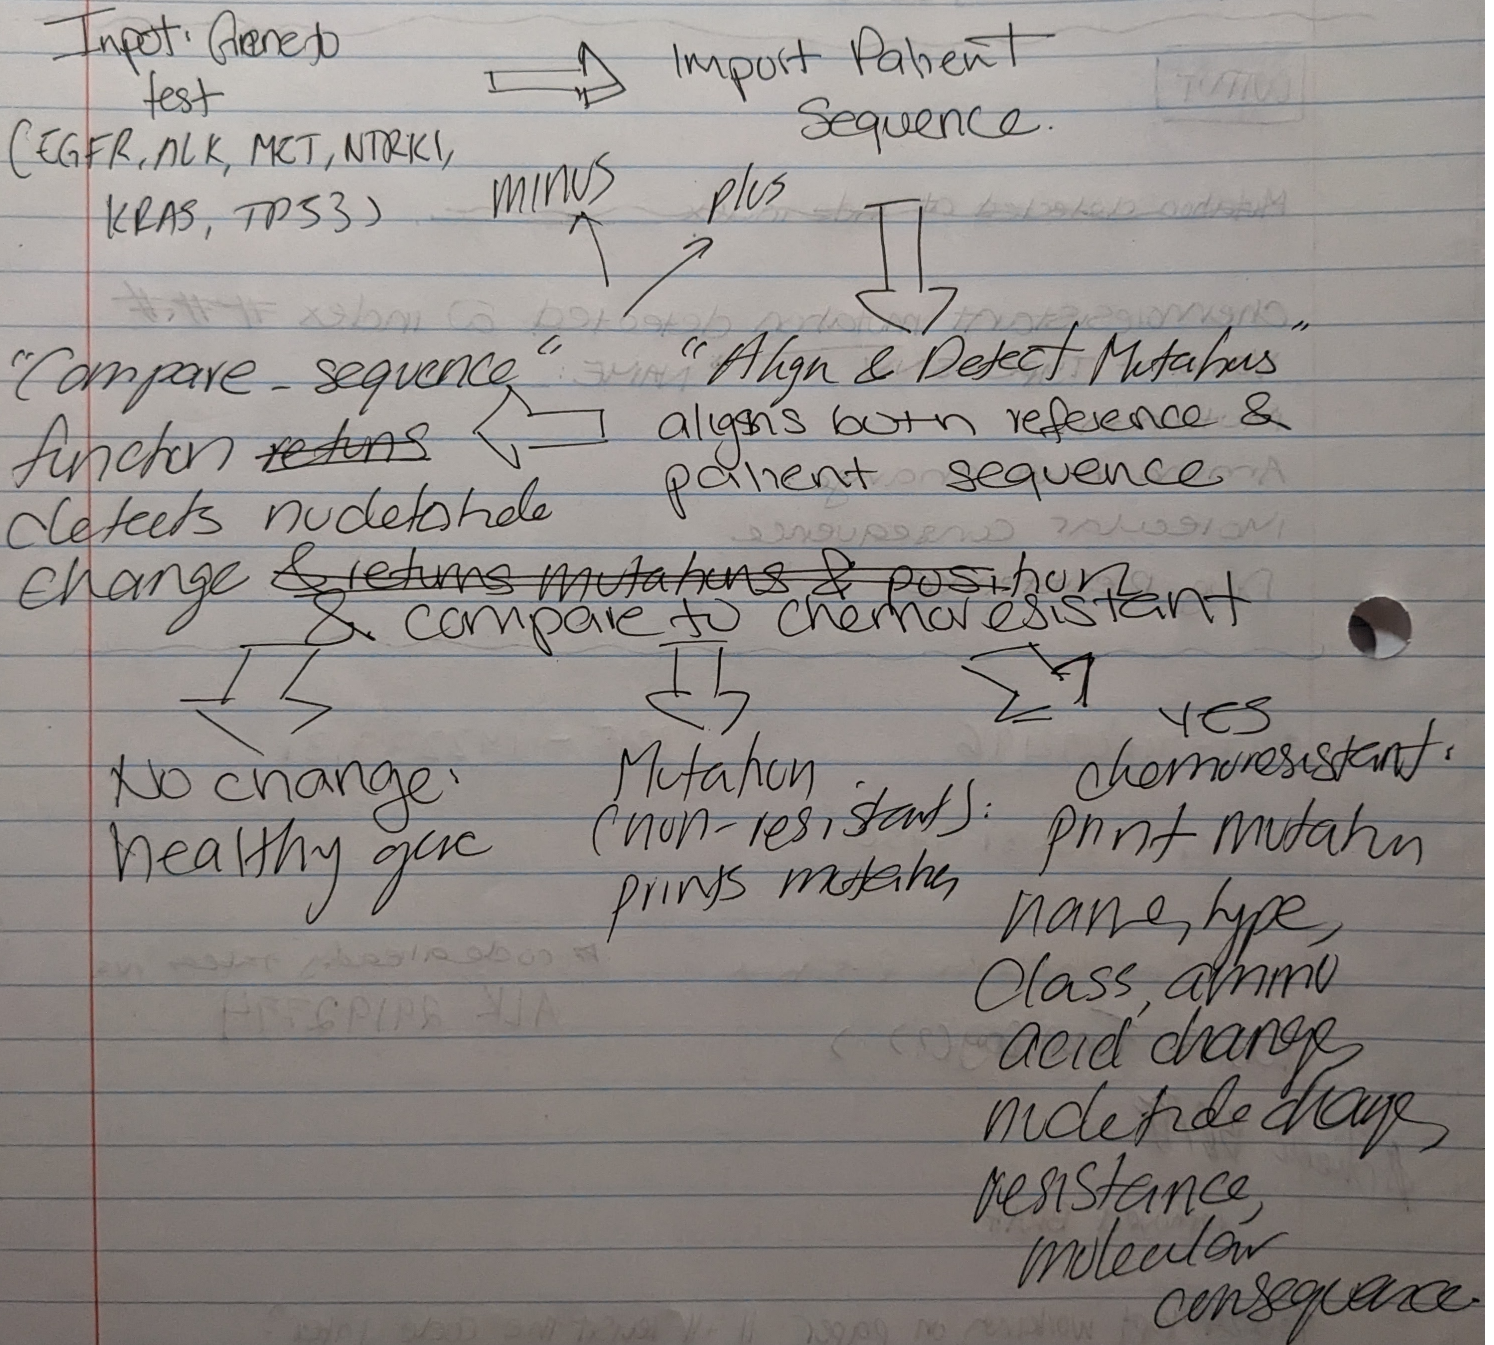 Input: Gene to
test
(EGFR, ALK, MET, NTRK1,
KRAS, TP53)
Import Patient
Sequence.
minus
plus
"Align & Detect Mutations"
aligns both reference &
patient sequence
"Compare_sequence"
function returns
detects nucleotide
change & returns mutations & position
& compare to chemoresistant
No change:
healthy gene
Mutation
(non-resistant):
prints mutation
yes
chemoresistant:
print mutation
name, type,
Class, amino
acid change,
nucleotide change,
resistance,
molecular
consequence